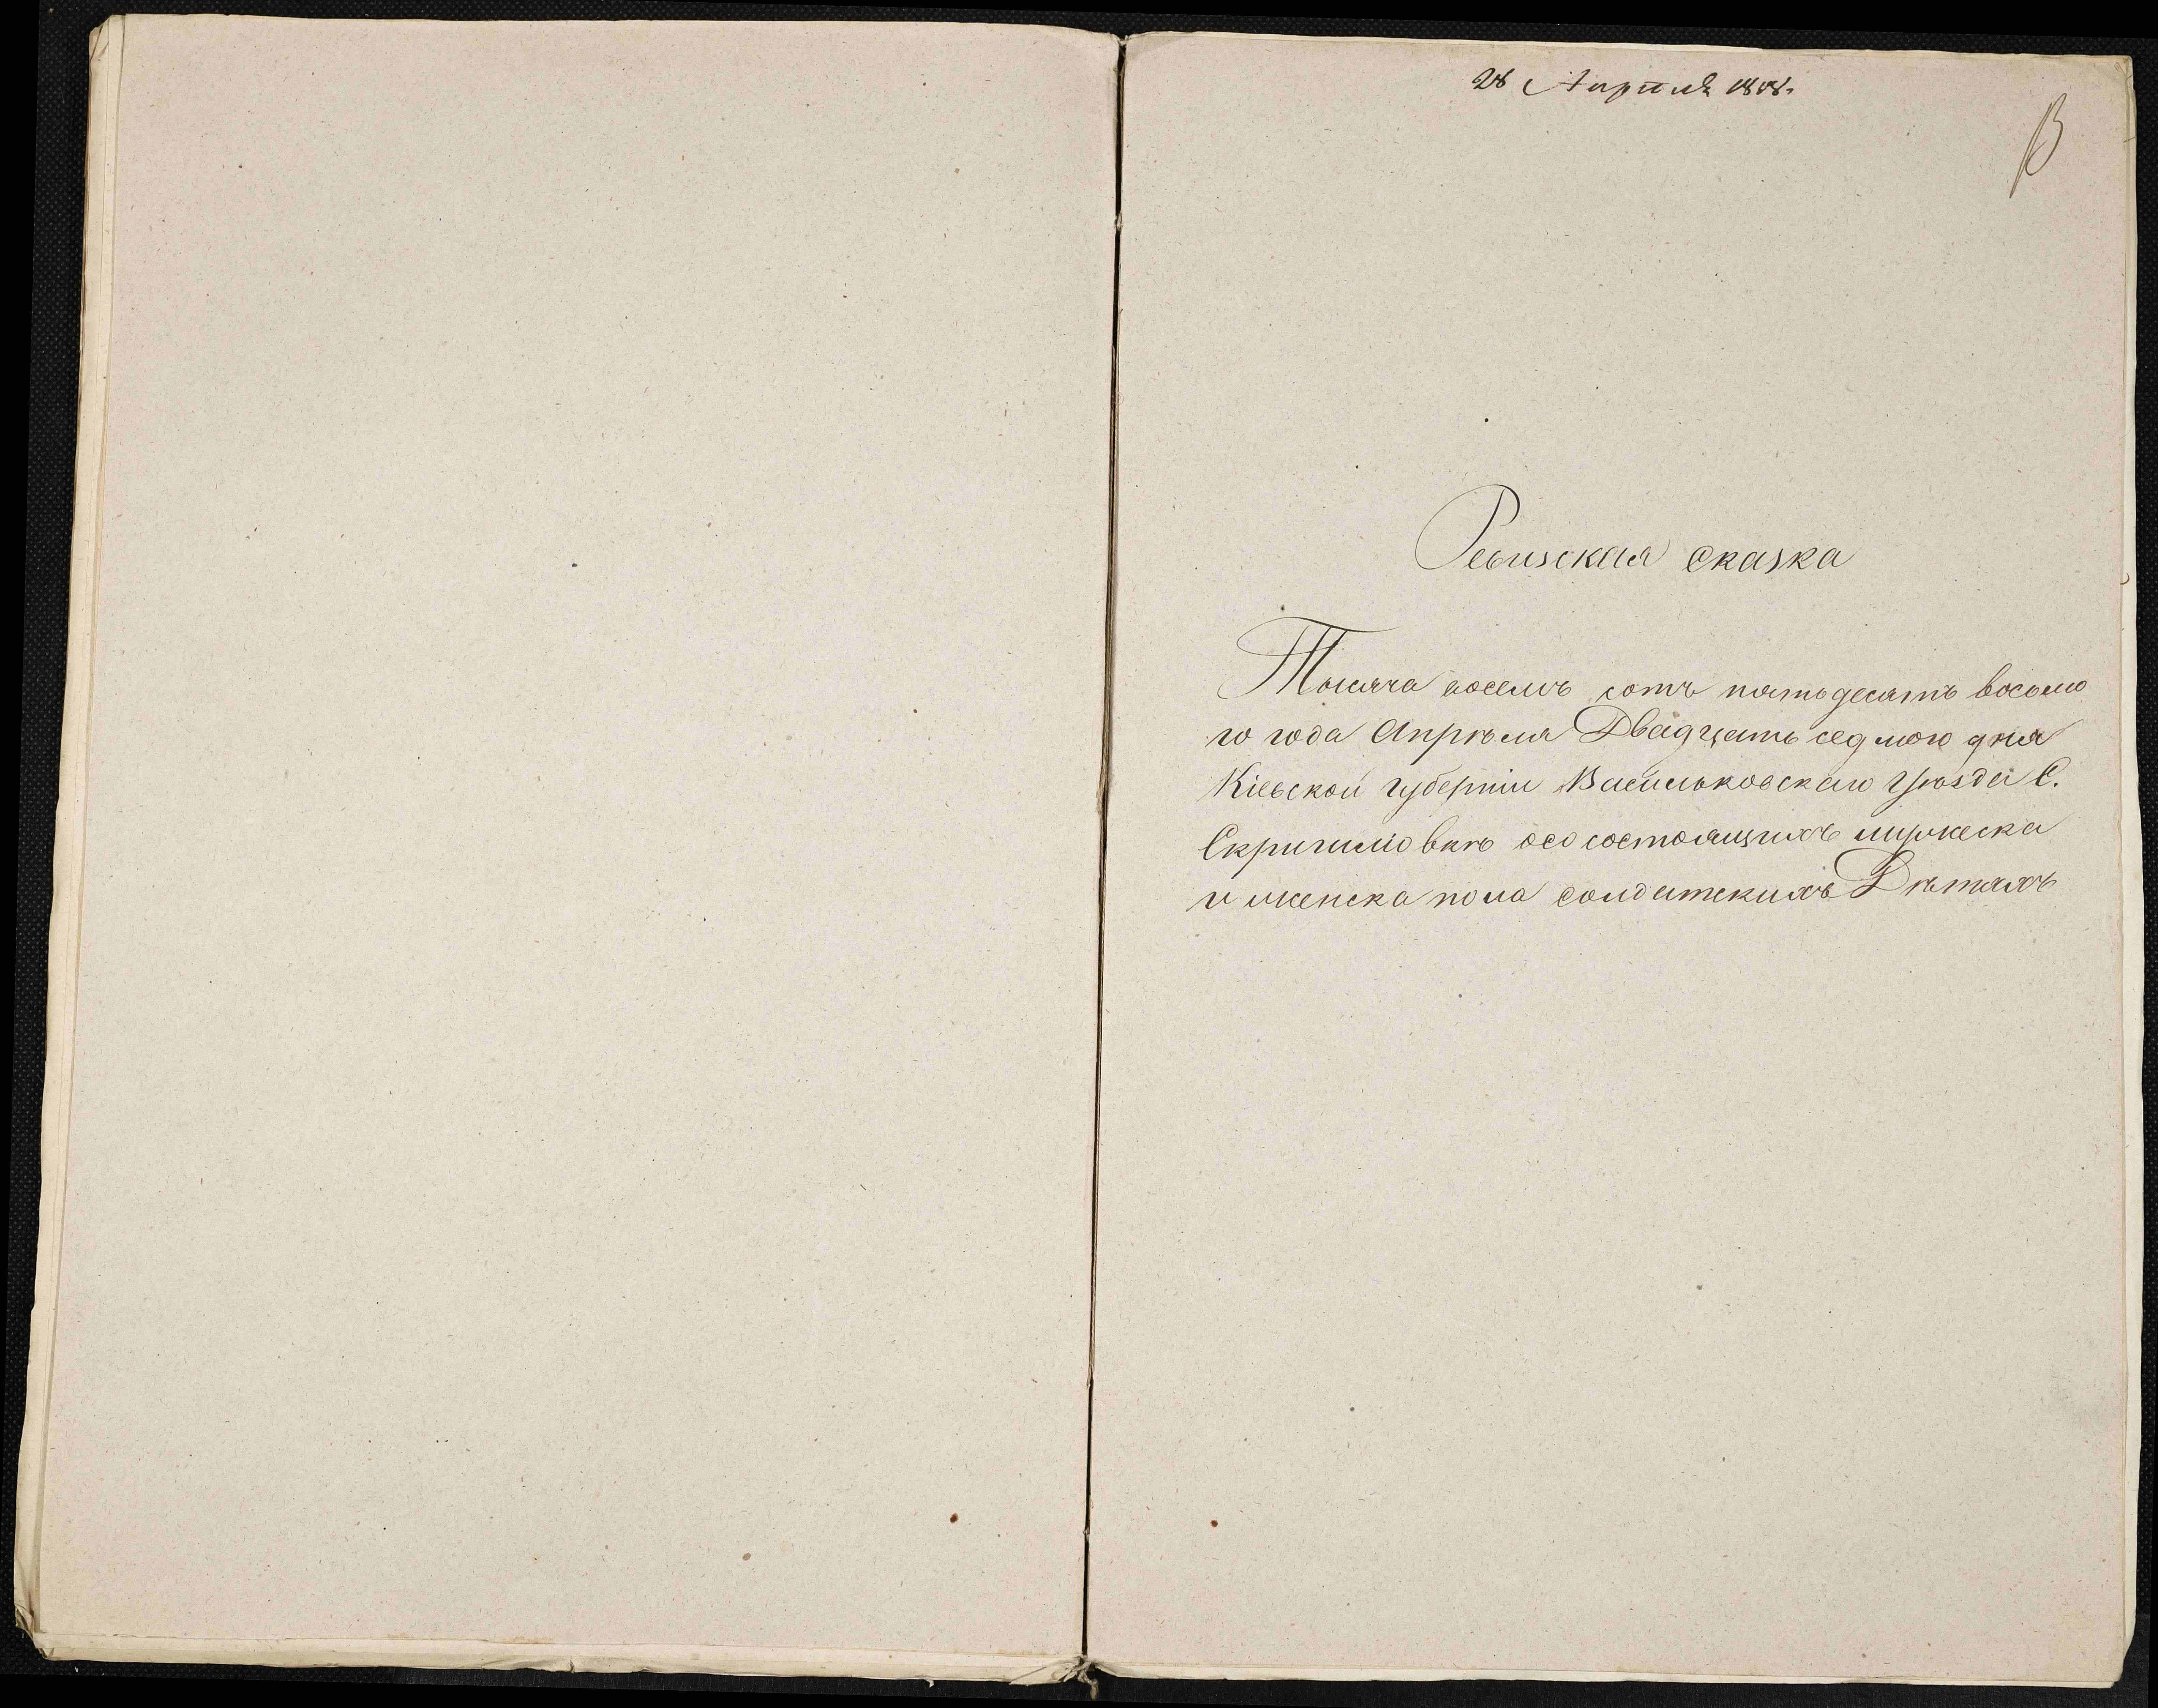 28 Апрѣля 1858.
Ревизская сказка
Тысяча восемь сотъ пятьдесятъ восьмо
го года Апрѣля Двадцать седмого дня
Кіевской губерніи Васильковскаго Уѣзда С.
состоящихъ мужеска
и женска пола солдатскихъ Дѣтяхъ